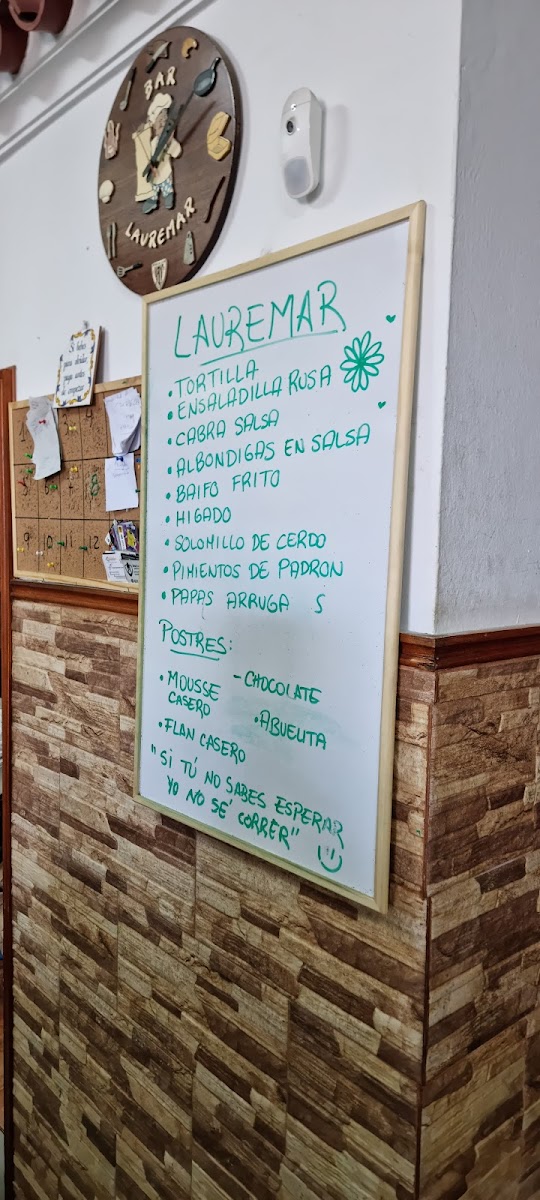 BAR
LAUREMAR
Si bebes
para olvidar
paga antes
de empezar
LAUREMAR
• TORTILLA
• ENSALADILLA RUSA
• CABRA SALSA
• ALBONDIGAS EN SALSA
• BAIFO FRITO
• HIGADO
• SOLOMILLO DE CERDO
• PIMIENTOS DE PADRON
• PAPAS ARRUGA S
POSTRES:
• MOUSSE - CHOCOLATE
CASERO • ABUELITA
• FLAN CASERO
"SI TÚ NO SABES ESPERAR
YO NO SÉ CORRER"
8
9 10 11 12